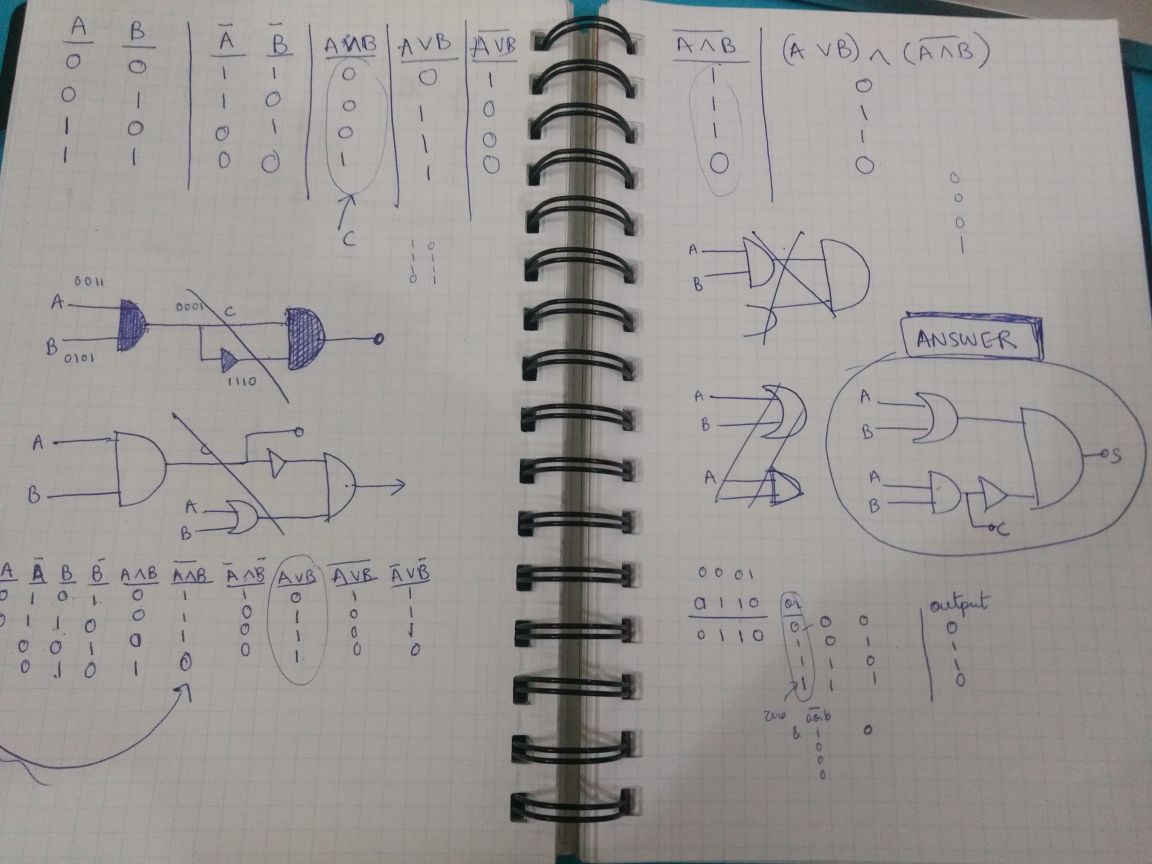 A B A̅ B̅ A∧B A∨B A̅∨̅B̅
0 0 1 1 0 0 1
0 1 1 0 0 1 0
1 0 0 1 0 1 0
1 1 0 0 1 1 0
C
1 0
1 1
1 1
0 1
0011
A
0001 C
B
0101
1110
A
C
B
A
B
A A̅ B B̅ A∧B A̅∧̅B̅ A̅∧B̅ A∨B A̅∨̅B̅ A̅∨B̅
0 1 0 1 0 1 1 0 1 1
0 1 1 0 0 1 0 1 0 1
0 0 1 0 1 0 1 0 1
0 1 0 1 0 0 1 0 0
A̅∧̅B̅ (A∨B) ∧ (A̅∧̅B̅)
1 0
1 1
1 1
0 0
0
0
0
1
A
B
ANSWER
A
B
A
A
B
S
A
B
C
0001
0110
0110
or output
0 0 0 0
1 0 1 1
1 1 0 1
1 1 1 0
zero
&
1 0
0
0
0